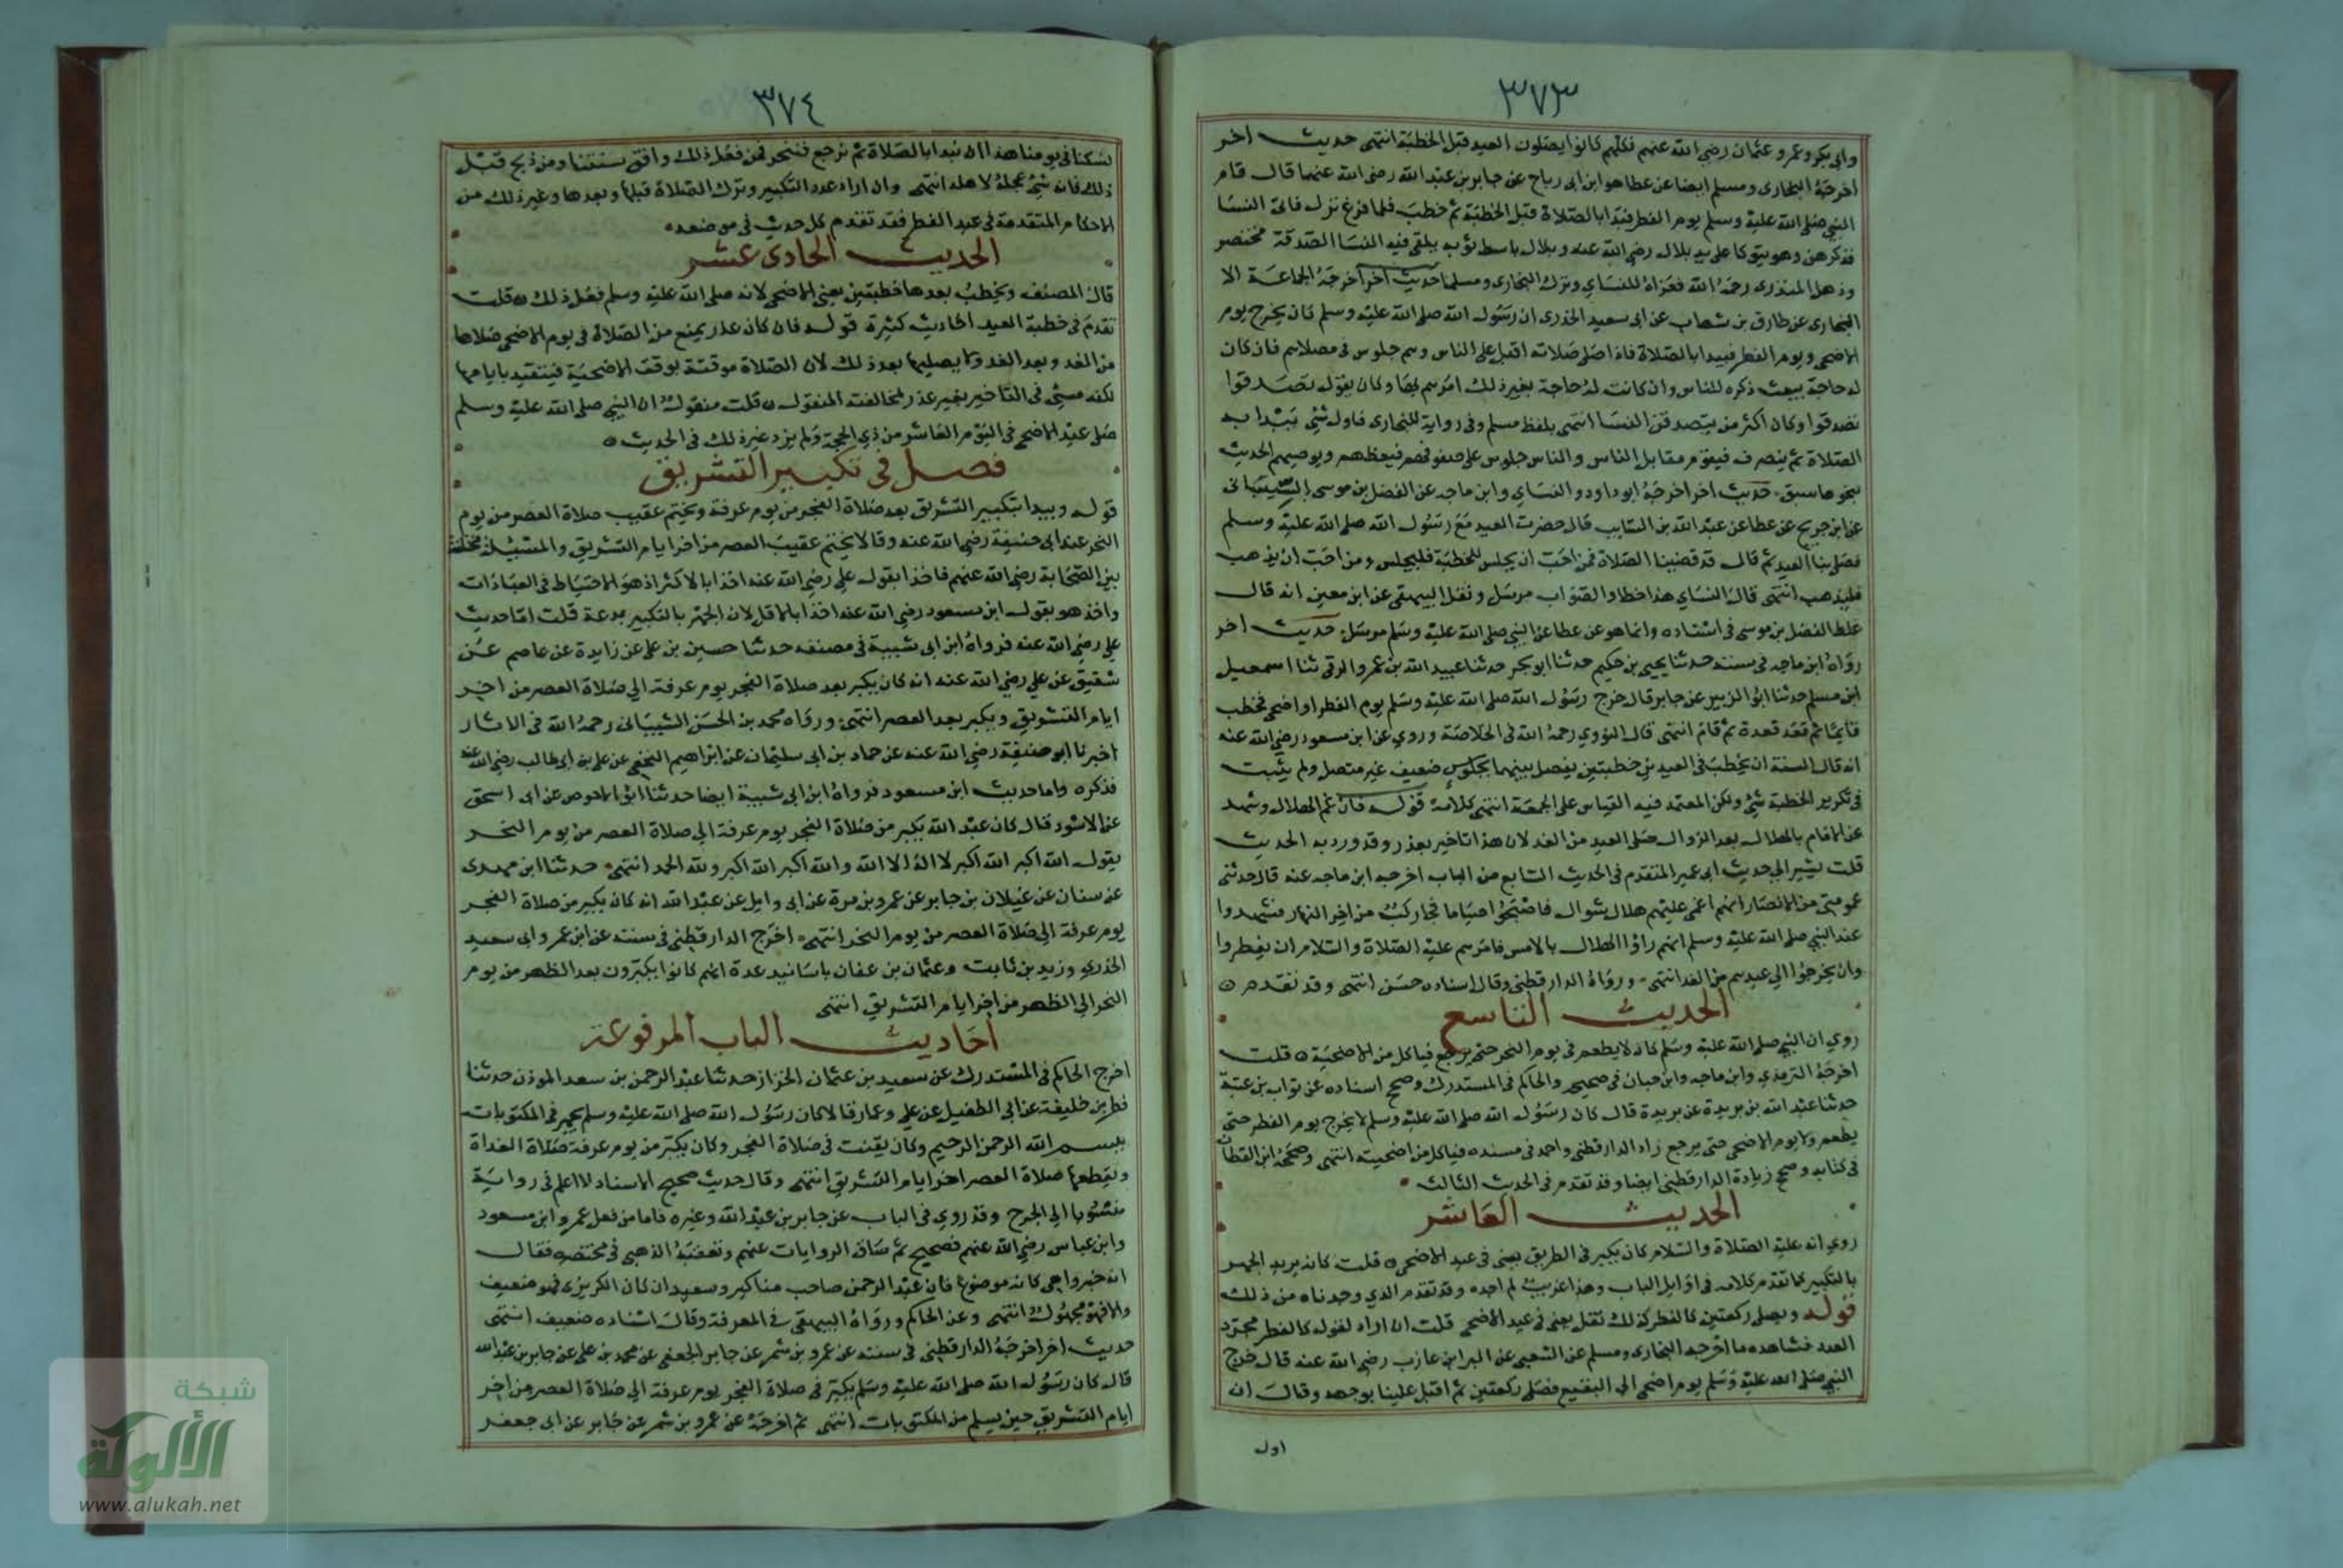 ٣٧٣
وابي بكر وعمر وعثمان رضي الله عنهم فكلهم كانوا يصلون العيد قبل الخطبة انتهى حديث اخر
اخرجه البخارى ومسلم ايضا عن عطا هو ابن ابى رباح عن جابر بن عبد الله رضى الله عنهما قال قام
النبي صلى الله عليه وسلم يوم الفطر فبدا بالصلاة قبل الخطبة ثم خطب فلما فرغ نزل فاتى النسا
فذكرهن وهو يتوكا على يد بلال رضي الله عنه وبلال باسط ثوبه يلقى فيه النسا الصدقة مختصر
وذهل المنذرى رحمه الله فعزاه للنساي وترك البخارى ومسلما حديث اخر اخرجه الجماعة الا
البخارى عن طارق بن شهاب عن ابى سعيد الخدرى ان رسول الله صلى الله عليه وسلم كان يخرج يوم
الاضحى ويوم الفطر فيبدا بالصلاة فاذا صلى صلاته اقبل على الناس وهم جلوس فى مصلاهم فان كان
له حاجة ببعث ذكره للناس وان كانت له حاجة بغير ذلك امرهم بها وكان يقول تصدقوا
تصدقوا وكان اكثر من يتصدق النسا انتهى بلفظ مسلم وفى رواية للبخارى فاول شئ يبدا به
الصلاة ثم ينصرف فيقوم مقابل الناس والناس جلوس على صفوفهم فيعظهم ويوصيهم الحديث
بنحو ما سبق حديث اخر اخرجه ابو داود والنساي وابن ماجه عن الفضل بن موسى السينانى
عن ابن جريج عن عطا عن عبد الله بن السايب قال حضرت العيد مع رسول الله صلى الله عليه وسلم
فصلى بنا العيد ثم قال قد قضينا الصلاة فمن احب ان يجلس للخطبة فليجلس ومن احب ان يذهب
فليذهب انتهى قال النساي هذا خطا والصواب مرسل ونقل البيهقى عن ابن معين انه قال
غلط الفضل بن موسى فى اسناده وانما هو عن عطا عن النبي صلى الله عليه وسلم مرسل حديث اخر
رواه ابن ماجه فى سننه حدثنا يحيى بن حكيم حدثنا ابو بحر حدثنا عبيد الله بن عمرو الرقى ثنا اسمعيل
ابن مسلم حدثنا ابو الزبير عن جابر قال خرج رسول الله صلى الله عليه وسلم يوم الفطر او اضحى فخطب
قايما ثم قعد قعدة ثم قام انتهى قال النووي رحمه الله فى الخلاصة وروي عن ابن مسعود رضي الله عنه
انه قال السنة ان يخطب فى العيدين خطبتين يفصل بينهما بجلوس ضعيف غير متصل ولم يثبت
فى تكرير الخطبة شئ ولكن المعتمد فيه القياس على الجمعة انتهى كلامه قوله فان غم الهلال وشهد
عند الامام بالهلال بعد الزوال صلى العيد من الغد لان هذا تاخير بعذر وقد ورد به الحديث
قلت يشير الى حديث ابى عمير المتقدم فى الحديث السابع من الباب اخرجه ابن ماجه عنه قال حدثنى
عمومتى من الانصار انهم اغمى عليهم هلال شوال فاصبحوا صياما فجا ركب من اخر النهار فشهدوا
عند النبي صلى الله عليه وسلم انهم راوا الهلال بالامس فامرهم عليه الصلاة والسلام ان يفطروا
وان يخرجوا الى عيدهم من الغد انتهى ورواه الدارقطنى وقال اسناده حسن انتهى وقد تقدم
الحديث التاسع
روي ان النبي صلى الله عليه وسلم كان لا يطعم فى يوم النحر حتى يرجع فياكل من الاضحية قلت
اخرجه الترمذي وابن ماجه وابن حبان فى صحيحه والحاكم فى المستدرك وصحح اسناده عن ثواب بن عتبة
حدثنا عبد الله بن بريدة عن بريدة قال كان رسول الله صلى الله عليه وسلم لا يخرج يوم الفطر حتى
يطعم ولا يوم الاضحى حتى يرجع زاد الدارقطنى واحمد فى مسنده فياكل من اضحيته انتهى وصححه ابن القطان
فى كتابه وصحح زيادة الدارقطنى ايضا وقد تقدم فى الحديث الثالث
الحديث العاشر
روي انه عليه الصلاة والسلام كان يكبر فى الطريق يعنى فى عيد الاضحى قلت كانه يريد الجهر
بالتكبير كما تقدم كلامه فى اوايل الباب وهذا غريب لم اجده وقد تقدم الذي وجدناه من ذلك
قوله ويصلى ركعتين كالفطر كذلك نقل يعنى فى عيد الاضحى قلت ان اراد لقوله كالفطر مجرد
العدد فشاهده ما اخرجه البخارى ومسلم عن الشعبى عن البرا بن عازب رضي الله عنه قال خرج
النبي صلى الله عليه وسلم يوم اضحى الى البقيع فصلى ركعتين ثم اقبل علينا بوجهه وقال ان
اول
٣٧٤
نسكنا فى يومنا هذا ان نبدا بالصلاة ثم نرجع فننحر فمن فعل ذلك وافق سنتنا ومن ذبح قبل
ذلك فانه شئ عجله لاهله انتهى وان اراد عدد التكبير وترك الصلاة قبلها وبعدها وغير ذلك من
الاحكام المتقدمة فى عيد الفطر فقد تقدم كل حديث فى موضعه
الحديث الحادى عشر
قال المصنف ويخطب بعدها خطبتين يعنى الاضحى لانه صلى الله عليه وسلم فعل ذلك قلت
تقدم فى خطبة العيد احاديث كثيرة قوله فان كان عذر يمنع من الصلاة فى يوم الاضحى صلاها
من الغد وبعد الغد ولا يصليها بعد ذلك لان الصلاة موقتة بوقت الاضحية فيتقيد بايامها
لكنه مسئ فى التاخير بغير عذر لمخالفته المنقول قلت منقول ان النبي صلى الله عليه وسلم
صلى عيد الاضحى فى اليوم العاشر من ذي الحجة ولم يزد غير ذلك فى الحديث
فصل فى تكبير التشريق
قوله ويبدا بتكبير التشريق بعد صلاة الفجر من يوم عرفة ويختم عقيب صلاة العصر من يوم
النحر عند ابى حنيفة رضي الله عنه وقالا يختم عقيب العصر من اخر ايام التشريق والمسئلة مختلفة
بين الصحابة رضي الله عنهم فاخذا بقول علي رضي الله عنه اخذا بالاكثر اذ هو الاحتياط فى العبادات
واخذ هو بقول ابن مسعود رضي الله عنه اخذا بالاقل لان الجهر بالتكبير بدعة قلت اما حديث
علي رضي الله عنه فرواه ابن ابى شيبة فى مصنفه حدثنا حسين بن على عن زايدة عن عاصم عن
شقيق عن علي رضي الله عنه انه كان يكبر بعد صلاة الفجر يوم عرفة الى صلاة العصر من اخر
ايام التشريق ويكبر بعد العصر انتهى ورواه محمد بن الحسن الشيبانى رحمه الله فى الاثار
اخبرنا ابو حنيفة رضي الله عنه عن حماد بن ابى سليمان عن ابراهيم النخعي عن على بن ابى طالب رضي الله عنه
فذكره واما حديث ابن مسعود فرواه ابن ابى شيبة ايضا حدثنا ابو الاحوص عن ابى اسحق
عن الاسود قال كان عبد الله يكبر من صلاة الفجر يوم عرفة الى صلاة العصر من يوم النحر
يقول الله اكبر الله اكبر لا اله الا الله والله اكبر الله اكبر ولله الحمد انتهى حدثنا ابن مهدى
عن سنان عن غيلان بن جابر عن عمرو بن مرة عن ابى وايل عن عبد الله انه كان يكبر من صلاة الفجر
يوم عرفة الى صلاة العصر من يوم النحر انتهى اخرج الدارقطنى فى سننه عن ابن عمر وابى سعيد
الخدري وزيد بن ثابت وعثمان بن عفان باسانيد عدة انهم كانوا يكبرون بعد الظهر من يوم
النحر الى الظهر من اخر ايام التشريق انتهى
احاديث الباب المرفوعة
اخرج الحاكم فى المستدرك عن سعيد بن عثمان الخزاز حدثنا عبد الرحمن بن سعد المؤذن حدثنا
فطر بن خليفة عن ابى الطفيل عن علي وعمار قالا كان رسول الله صلى الله عليه وسلم يجهر فى المكتوبات
ببسم الله الرحمن الرحيم وكان يقنت فى صلاة الفجر وكان يكبر من يوم عرفة صلاة الغداة
ويقطعها صلاة العصر اخر ايام التشريق انتهى وقال حديث صحيح الاسناد لا اعلم فى رواية
منسوبا الى الجرح وقد روي فى الباب عن جابر بن عبد الله وغيره فاما من فعل عمر وابن مسعود
وابن عباس رضي الله عنهم فصحيح ثم ساق الروايات عنهم وتعقبه الذهبى فى مختصره فقال
انه خبر واهى كانه موضوع فان عبد الرحمن صاحب مناكير وسعيد ان كان الكريزى فهو ضعيف
والا فهو مجهول انتهى وعن الحاكم ورواه البيهقى فى المعرفة وقال اسناده ضعيف انتهى
حديث اخر اخرجه الدارقطنى فى سننه عن عمرو بن شمر عن جابر الجعفى عن محمد بن على عن جابر بن عبد الله
قال كان رسول الله صلى الله عليه وسلم يكبر فى صلاة الفجر يوم عرفة الى صلاة العصر من اخر
ايام التشريق حين يسلم من المكتوبات انتهى ثم اخرجه عن عمرو بن شمر عن جابر عن ابى جعفر
شبكة
الألوكة
www.alukah.net